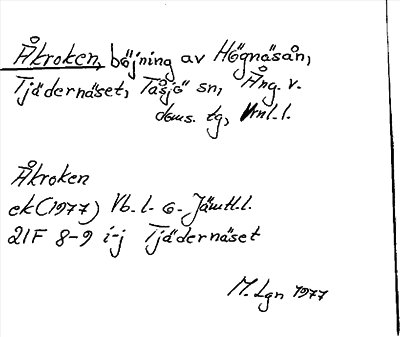 Åkroken, böjning av Högnäsån,
Tjädernäset, Tåsjö sn, Ång. v.
doms. tg, Vrnl.l.
Åkroken
ek (1977) Vb. l. o. Jämtl.l.
21F 8-9 i-j Tjädernäset
M. Lgn 1977